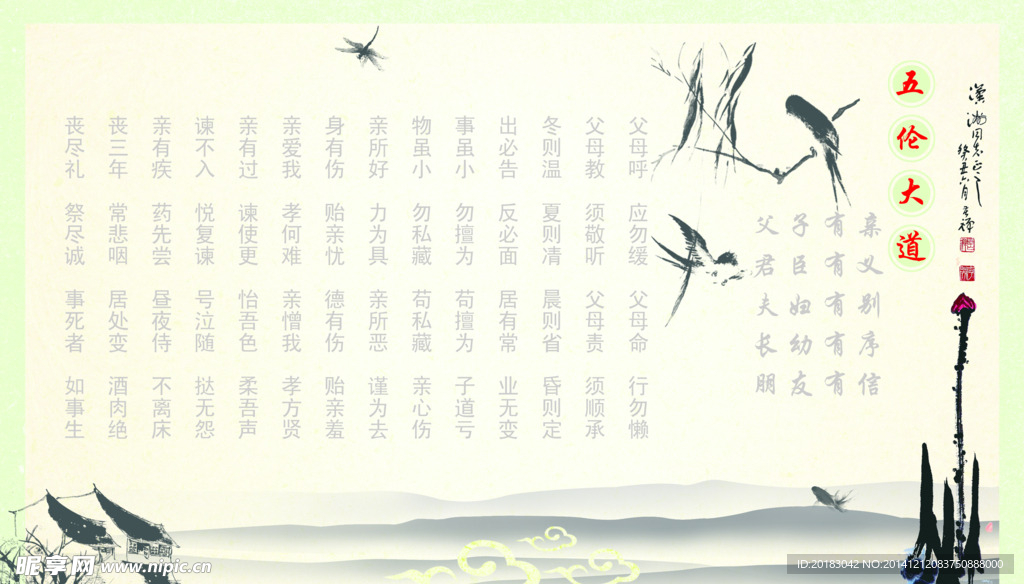 五伦大道
父子有亲
君臣有义
夫妇有别
长幼有序
朋友有信
父母呼 应勿缓 父母命 行勿懒
父母教 须敬听 父母责 须顺承
冬则温 夏则凊 晨则省 昏则定
出必告 反必面 居有常 业无变
事虽小 勿擅为 苟擅为 子道亏
物虽小 勿私藏 苟私藏 亲心伤
亲所好 力为具 亲所恶 谨为去
身有伤 贻亲忧 德有伤 贻亲羞
亲爱我 孝何难 亲憎我 孝方贤
亲有过 谏使更 怡吾色 柔吾声
谏不入 悦复谏 号泣随 挞无怨
亲有疾 药先尝 昼夜侍 不离床
丧三年 常悲咽 居处变 酒肉绝
丧尽礼 祭尽诚 事死者 如事生
昵享网 www.nipic.cn
ID:20183042 NO:20141212083750888000